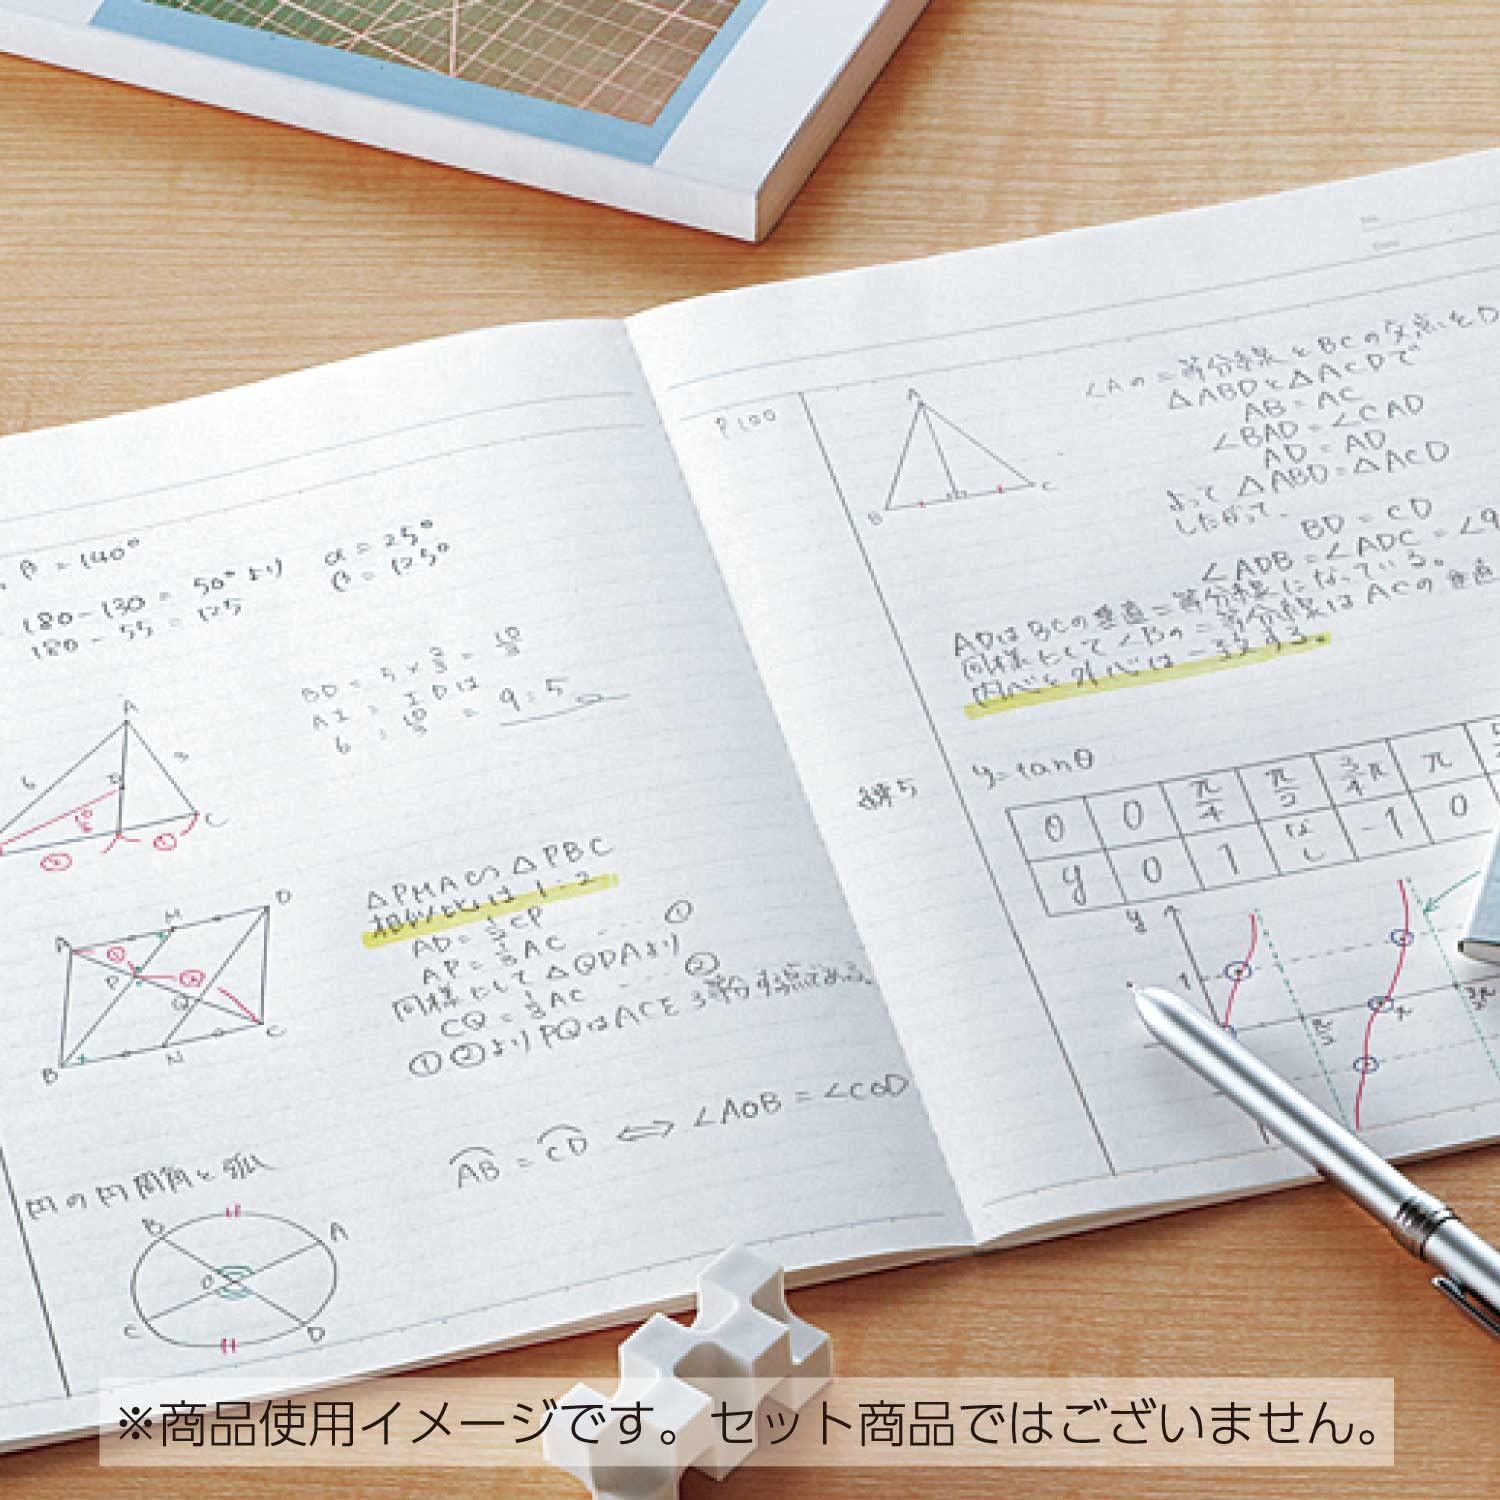 β = 140°
180 - 130 = 50° より
180 - 55 = 125
α = 25°
β = 125°
BD = 5 ×
AI : ID は
= 9:5
A
6
3
C
② ①
△PMA∽△PBC
相似比は 1:2
AD =
CP
AP = 1/3 AC ・・・ ①
同様にして △QDAより
CQ = 1/3 AC ・・・ ②
①②より PQはACを3等分する点である。
A M D
P
Q
B N C
AB = CD ⇔ ∠AOB = ∠COD
円の円周角と弧
B A
O
C D
No.
Date
P100
A
B C
∠Aの二等分線とBCの交点をD
△ABDと△ACDで
AB = AC
∠BAD = ∠CAD
AD = AD
よって △ABD = △ACD
したがって、
BD = CD
∠ADB = ∠ADC = ∠9
ADはBCの垂直二等分線になっている。
同様にして∠Bの二等分線はACの垂直
内心と外心は一致する。
y = tanθ
θ 0 π/4 π/2 3/4π π
y 0 1 なし -1 0
y
1
π/2 π
※商品使用イメージです。セット商品ではございません。